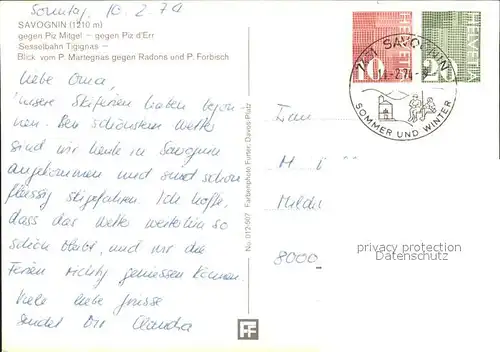 Sonntag, 10.2.74
SAVOGNIN (1210 m)
gegen Piz Mitgel – gegen Piz d'Err
Sesselbahn Tigignas –
Blick vom P. Martegnas gegen Radons und P. Forbisch
Liebe Oma,
Unsere Skiferien haben begon-
nen. Bei schönstem Wetter
sind wir heute in Savognin
angekommen und sind schon
fleissig skigefahren. Ich hoffe,
dass das Wetter weiterhin so
schön bleibt, und wir die
Ferien richtig geniessen können.
Viele liebe Grüsse
sendet Dir Claudia
No. 012-507 Farbenphoto Furter, Davos-Platz
HELVETIA
10
HELVETIA
20
7451 SAVOGNIN
SOMMER UND WINTER
8000
privacy protection
Datenschutz